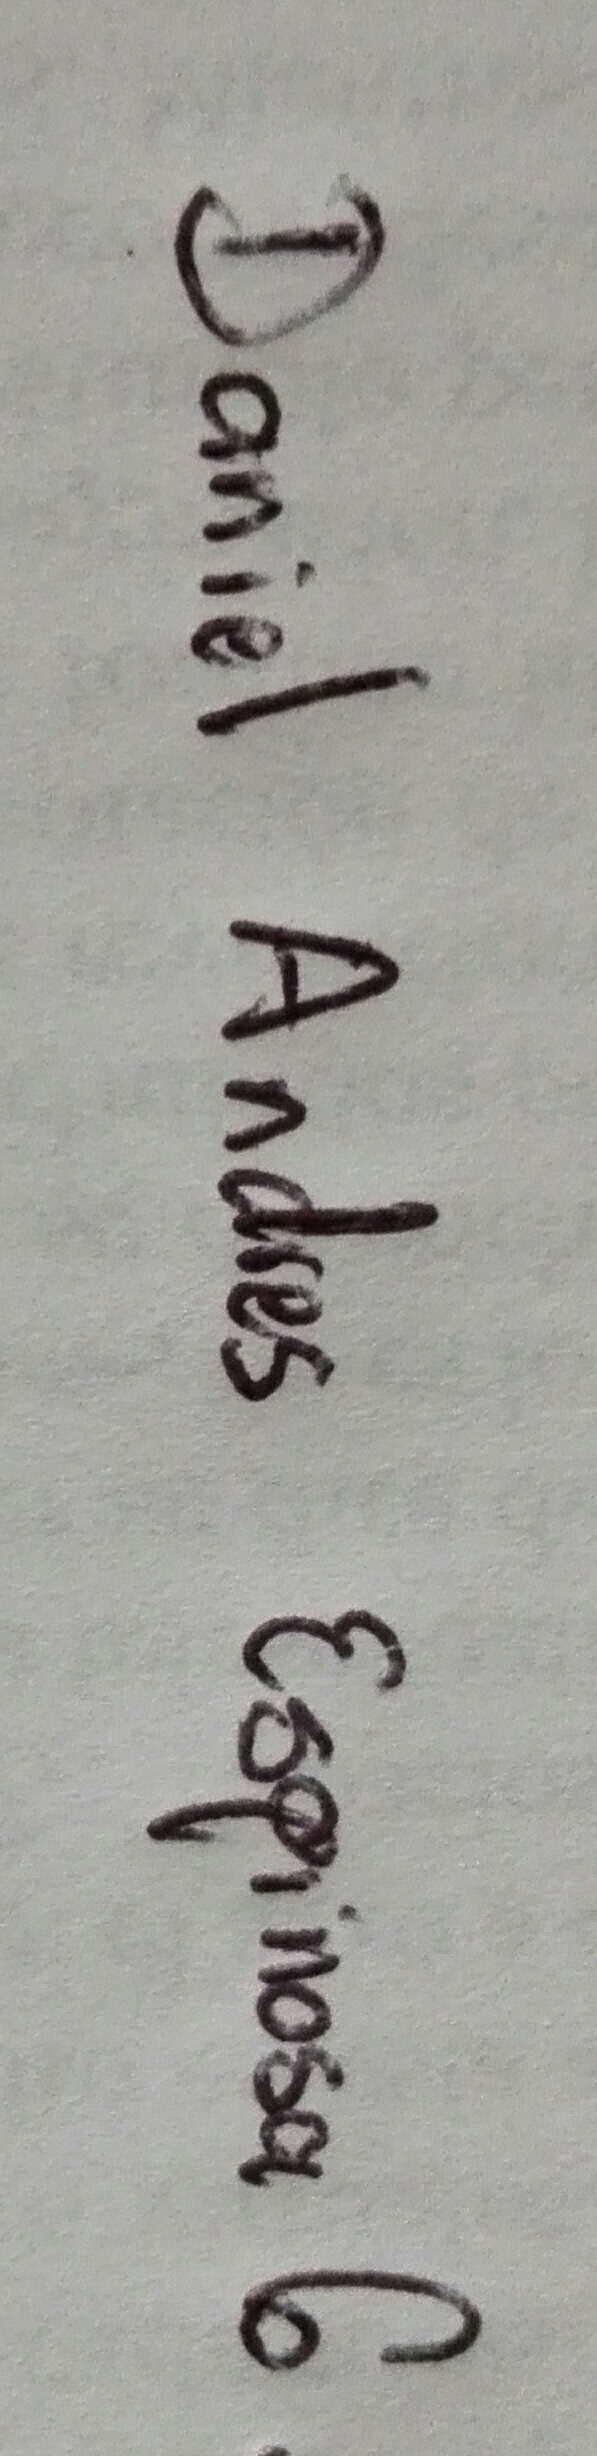 Daniel Andres Espinosa G.